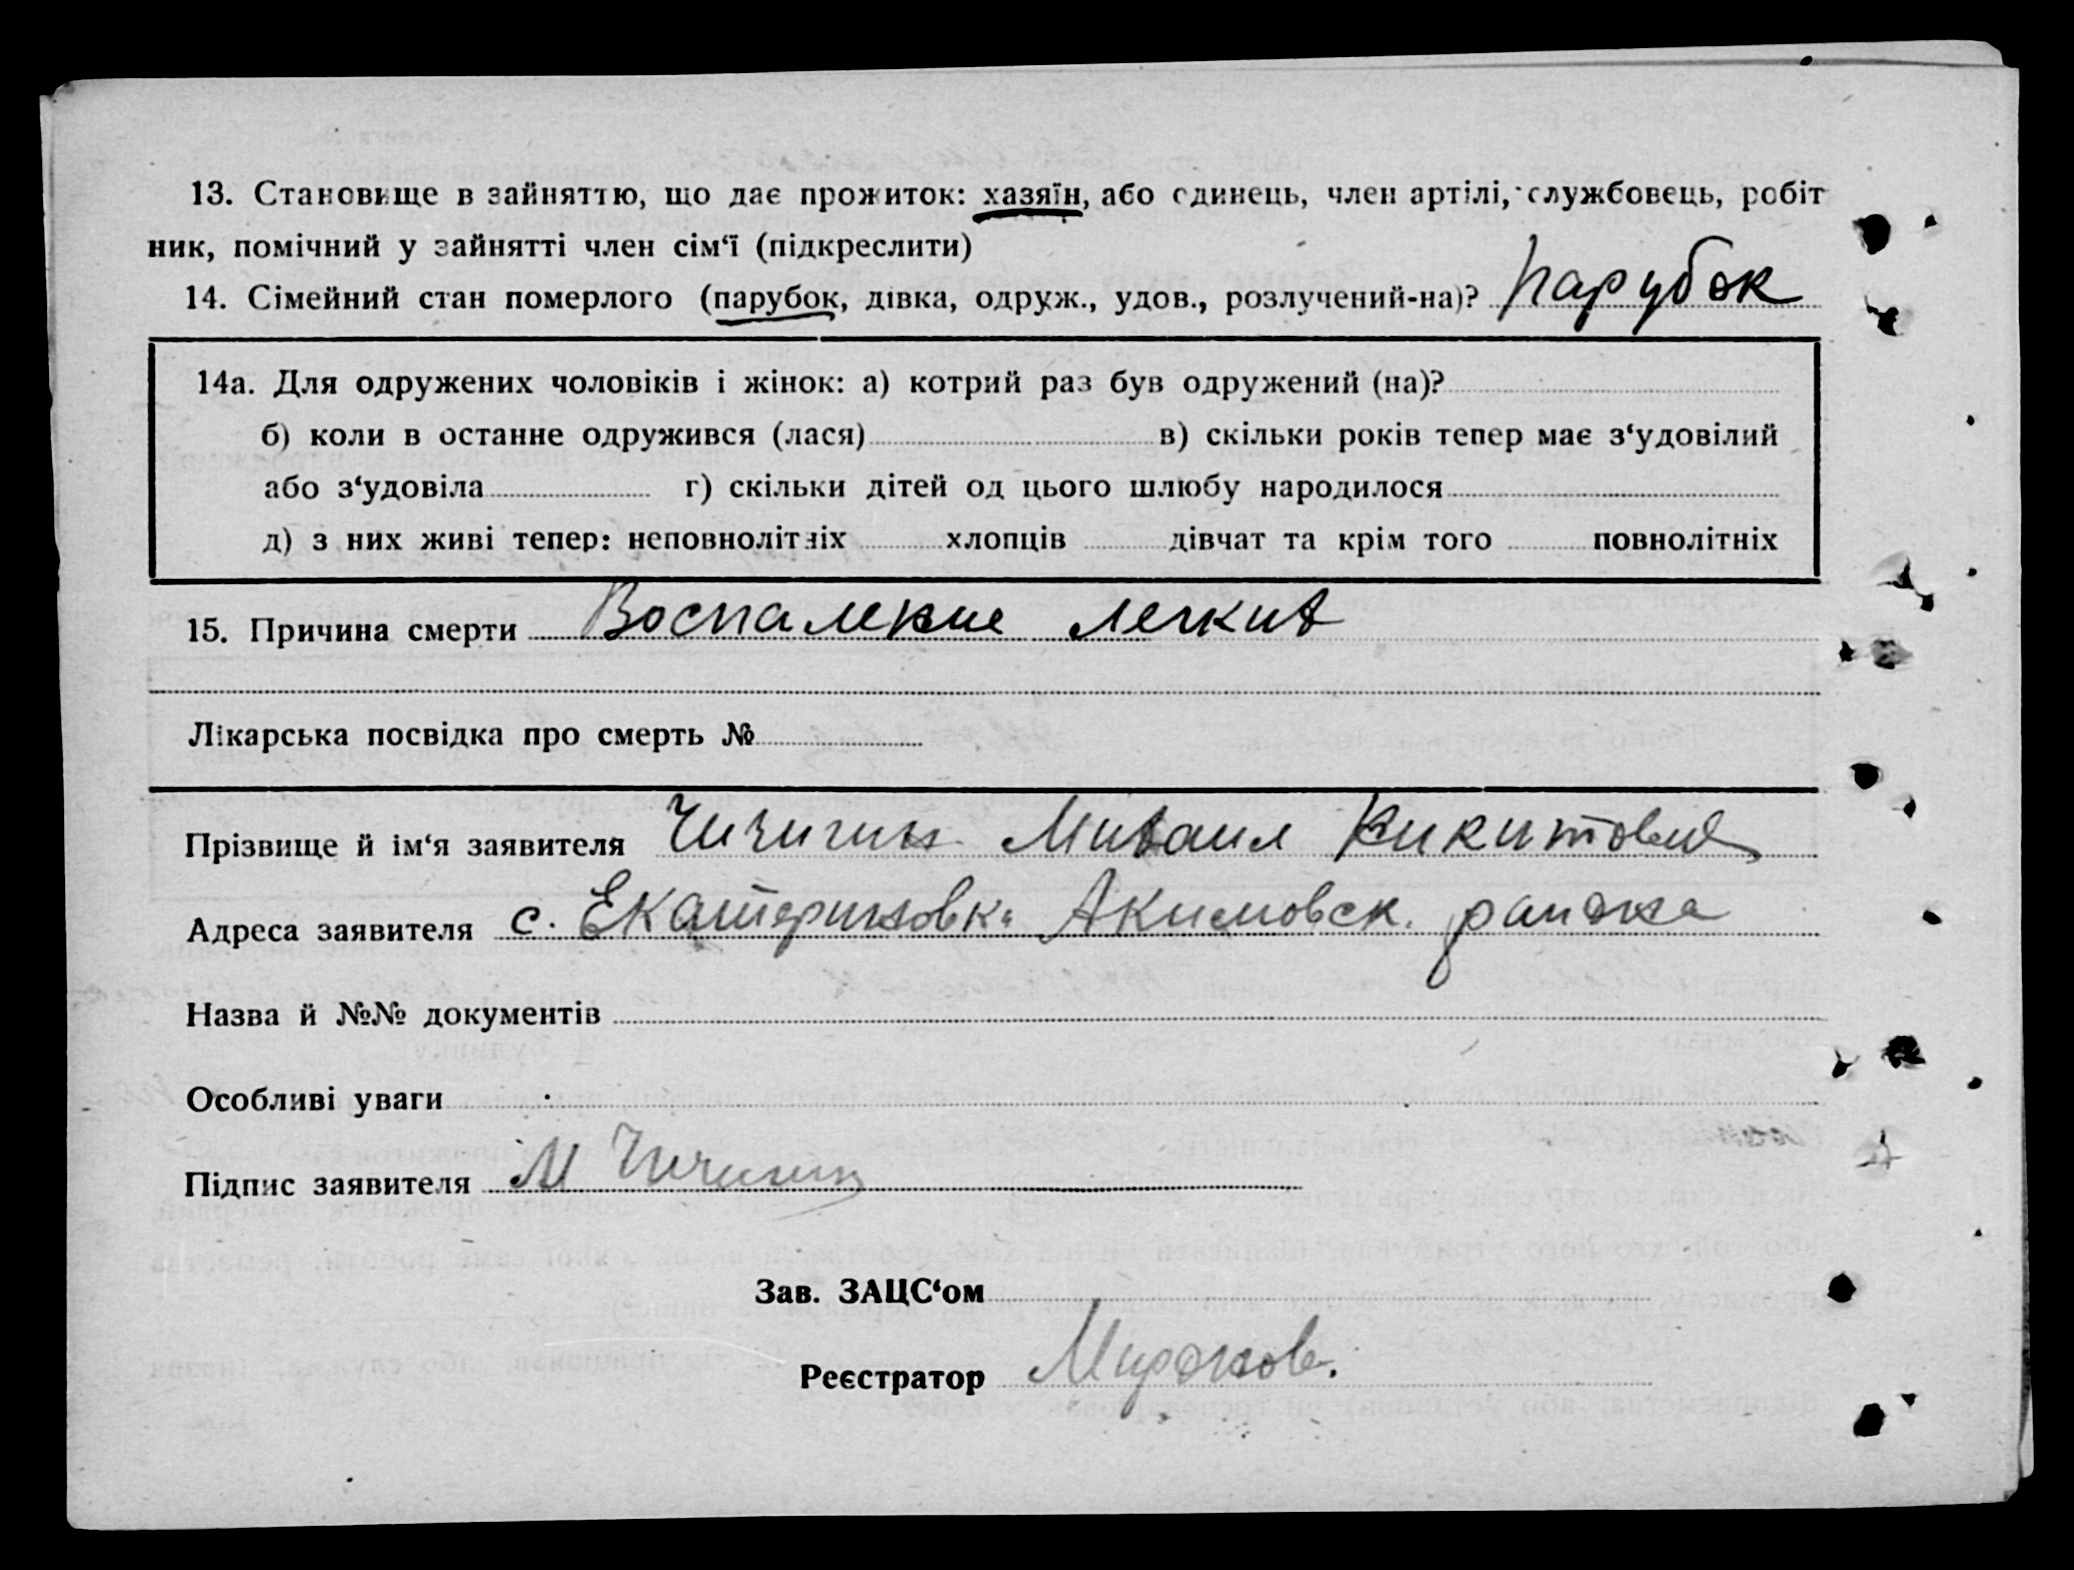 13. Становище в зайняттю, що дає прожиток: хазяїн, або єдинець, член артілі, службовець, робіт
ник, помічний у зайнятті член сім‘ї (підкреслити)
14. Сімейний стан померлого (парубок, дівка, одруж., удов., розлучений-на)? парубок
14а. Для одружених чоловіків і жінок: а) котрий раз був одружений (на)?
б) коли в останнє одружився (лася) в) скільки років тепер має з‘удовілий
або з‘удовіла г) скільки дітей од цього шлюбу народилося
д) з них живі тепер: неповнолітніх хлопців дівчат та крім того повнолітніх
15. Причина смерти Воспаление легких
Лікарська посвідка про смерть №
Прізвище й ім‘я заявителя Чичигин Михаил Никитович
Адреса заявителя с. Екатериновка Акимовск. района
Назва й №№ документів
Особливі уваги
Підпис заявителя М Чичигин
Зав. ЗАЦС‘ом
Реєстратор Миронов.